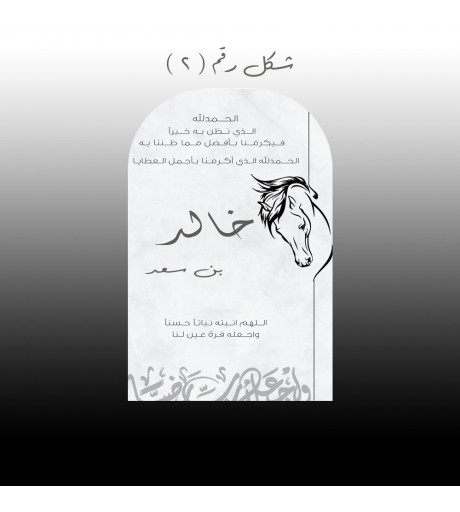 شكل رقم ( ٢ )
الحمدلله
الذي نظن به خيراً
فيكرمنا بأفضل مما ظننا به
الحمدلله الذي أكرمنا بأجمل العطايا
خالد
بن سعد
اللهم انبته نباتاً حسناً
واجعله قرة عين لنا
واجعله رب رضيا